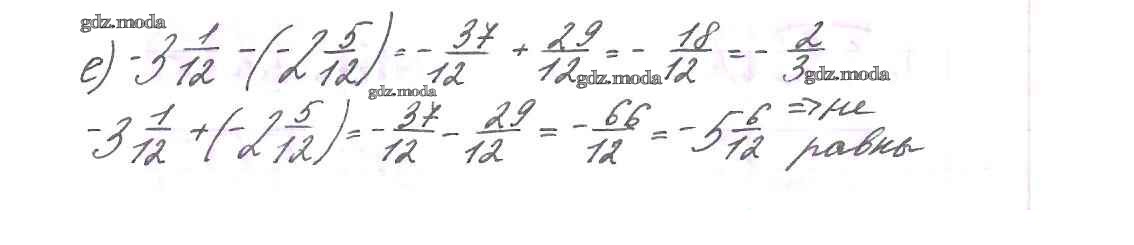 gdz.moda
е) -3 1/12 - (-2 5/12) = - 37/12 + 29/12 = - 18/12 = - 2/3
gdz.moda gdz.moda
gdz.moda
-3 1/12 + (-2 5/12) = - 37/12 - 29/12 = - 66/12 = -5 6/12 => не
равны